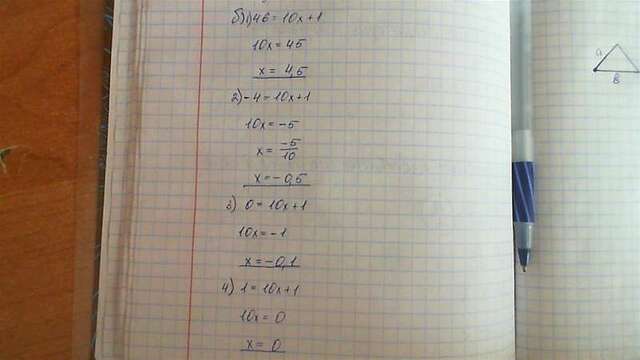 б) 1) 46 = 10x+1
10x = 45
x = 4,5
2) -4 = 10x+1
10x = -5
x = -5/10
x = -0,5
3) 0 = 10x+1
10x = -1
x = -0,1
4) 1 = 10x+1
10x = 0
x = 0
a
в